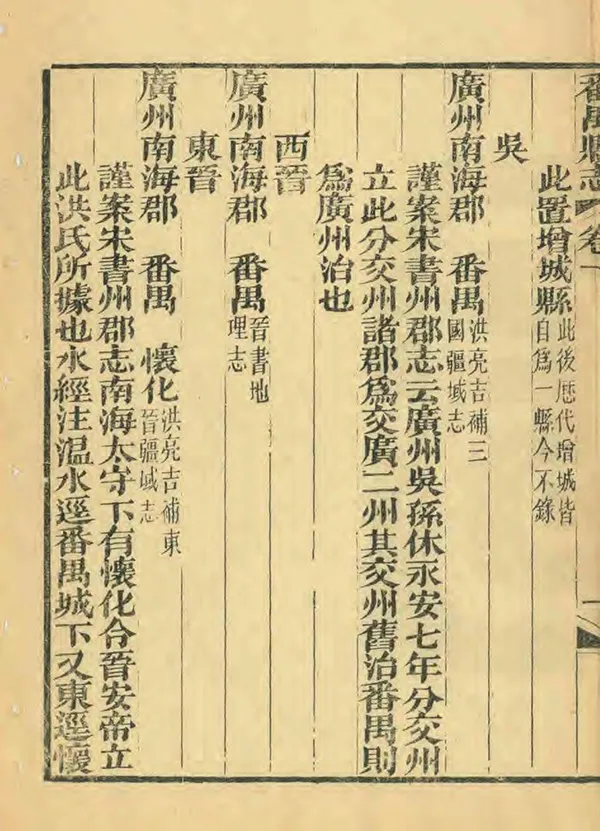 番禺縣志 卷一
此置增城縣此後歷代增城皆自爲一縣今不錄
吳
廣州南海郡 番禺洪亮吉補三國疆域志
謹案宋書州郡志云廣州吳孫休永安七年分交州
立此分交州諸郡爲交廣二州其交州舊治番禺則
爲廣州治也
西晉
廣州南海郡 番禺晉書地理志
東晉
廣州南海郡 番禺 懷化洪亮吉補東晉疆域志
謹案宋書州郡志南海太守下有懷化令晉安帝立
此洪氏所據也水經注溫水逕番禺城下又東逕懷